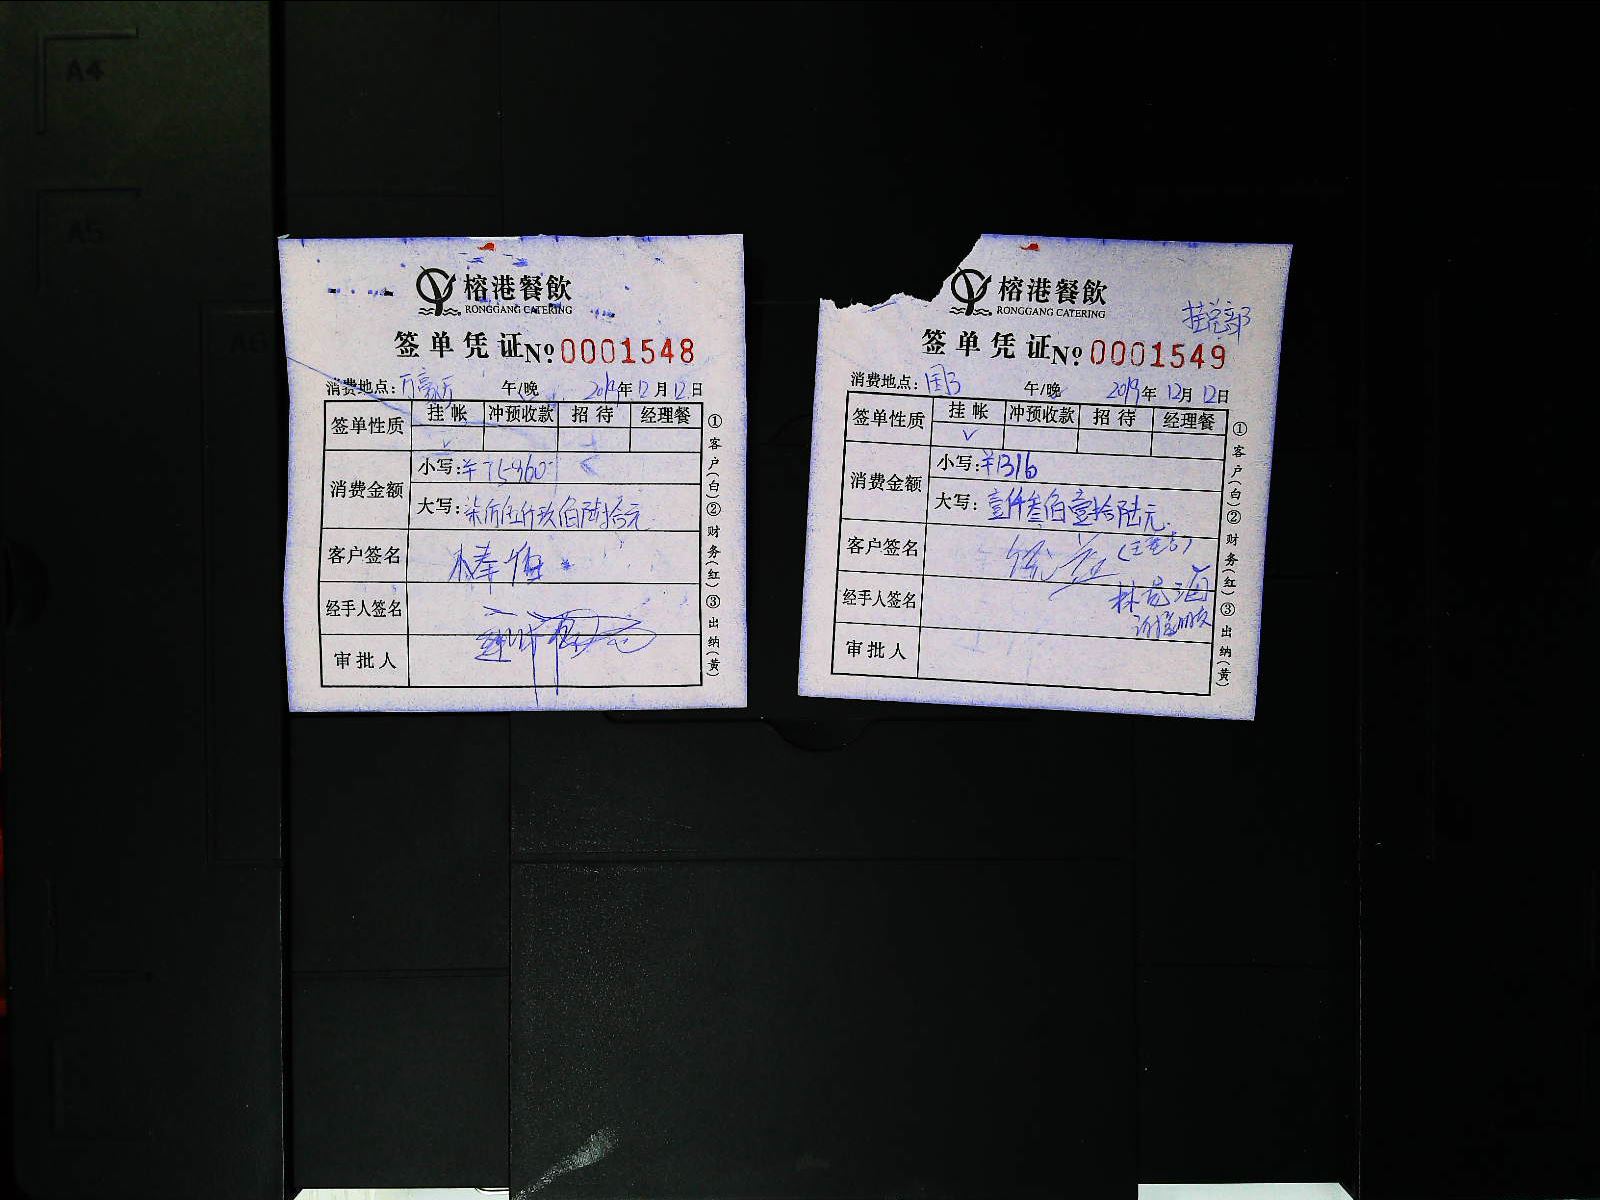 A4
A5
A6
榕港餐飲
RONGGANG CATERING
签单凭证No 0001548
消费地点: 万豪 午/晚 2019年12月12日
签单性质 挂帐 冲预收款 招待 经理餐
√
消费金额 小写:¥75960
大写:柒万伍仟玖佰陆拾元
客户签名
经手人签名
审批人
①客户(白)②财务(红)③出纳(黄)
榕港餐飲
RONGGANG CATERING
挂总部
签单凭证No 0001549
消费地点: 国 午/晚 2019年12月12日
签单性质 挂帐 冲预收款 招待 经理餐
√
消费金额 小写:¥1316
大写:壹仟叁佰壹拾陆元
客户签名
经手人签名 林 海
审批人
①客户(白)②财务(红)③出纳(黄)